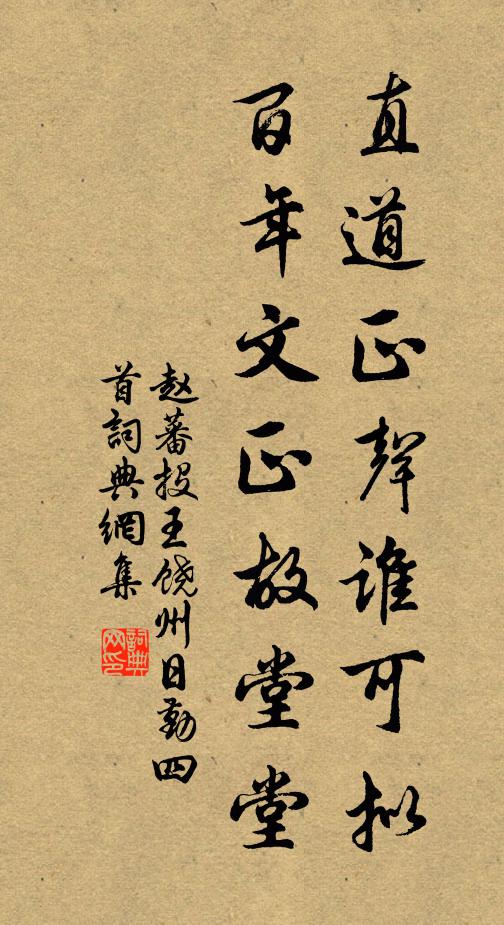 直道正聲誰可拟
百年文正故堂堂
赵蕃投王饶州日勤四
首詞典網集
詞典
网印